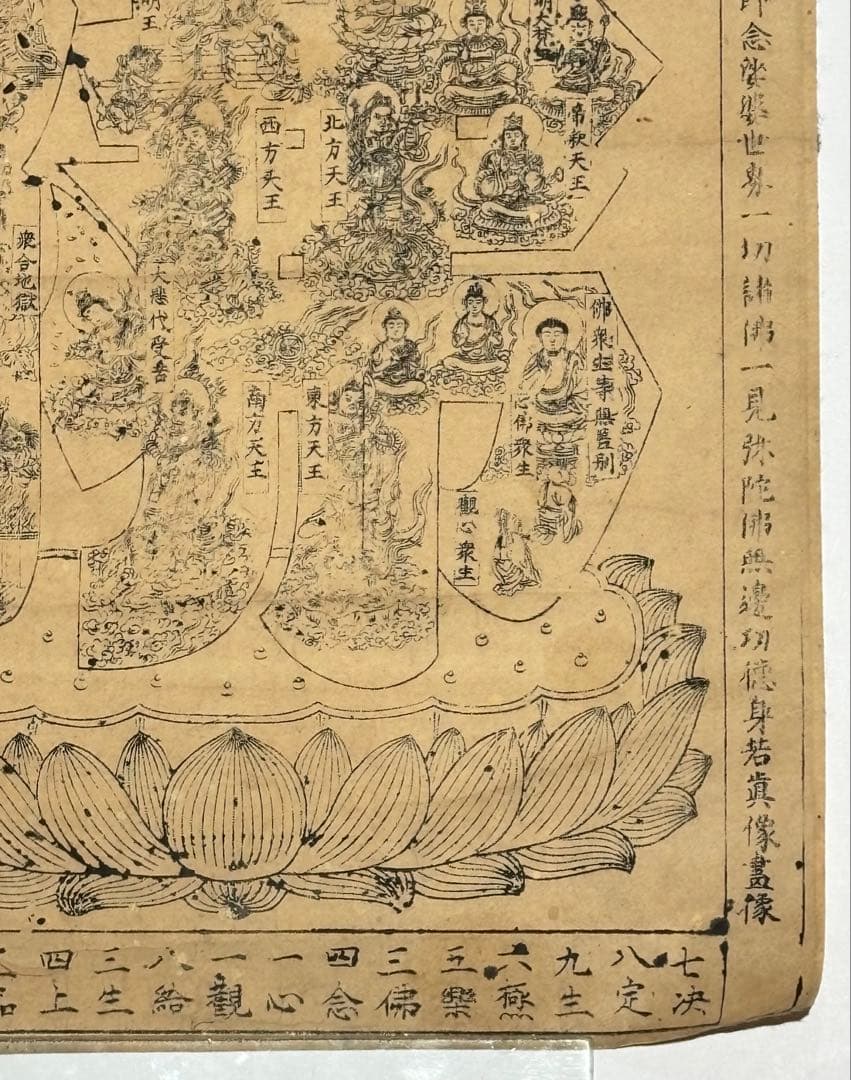 即念娑婆世界一切諸佛一見弥陀佛無邊功徳身若眞像畫像
明王
帝釈天王
北方天王
西方天王
佛衆生事無差別
心佛衆生
観心衆生
東方天王
南方天王
大悲代受苦
衆合地獄
七决
八定
九生
六極
五樂
三佛
四念
一心
一觀
八給
三生
四上